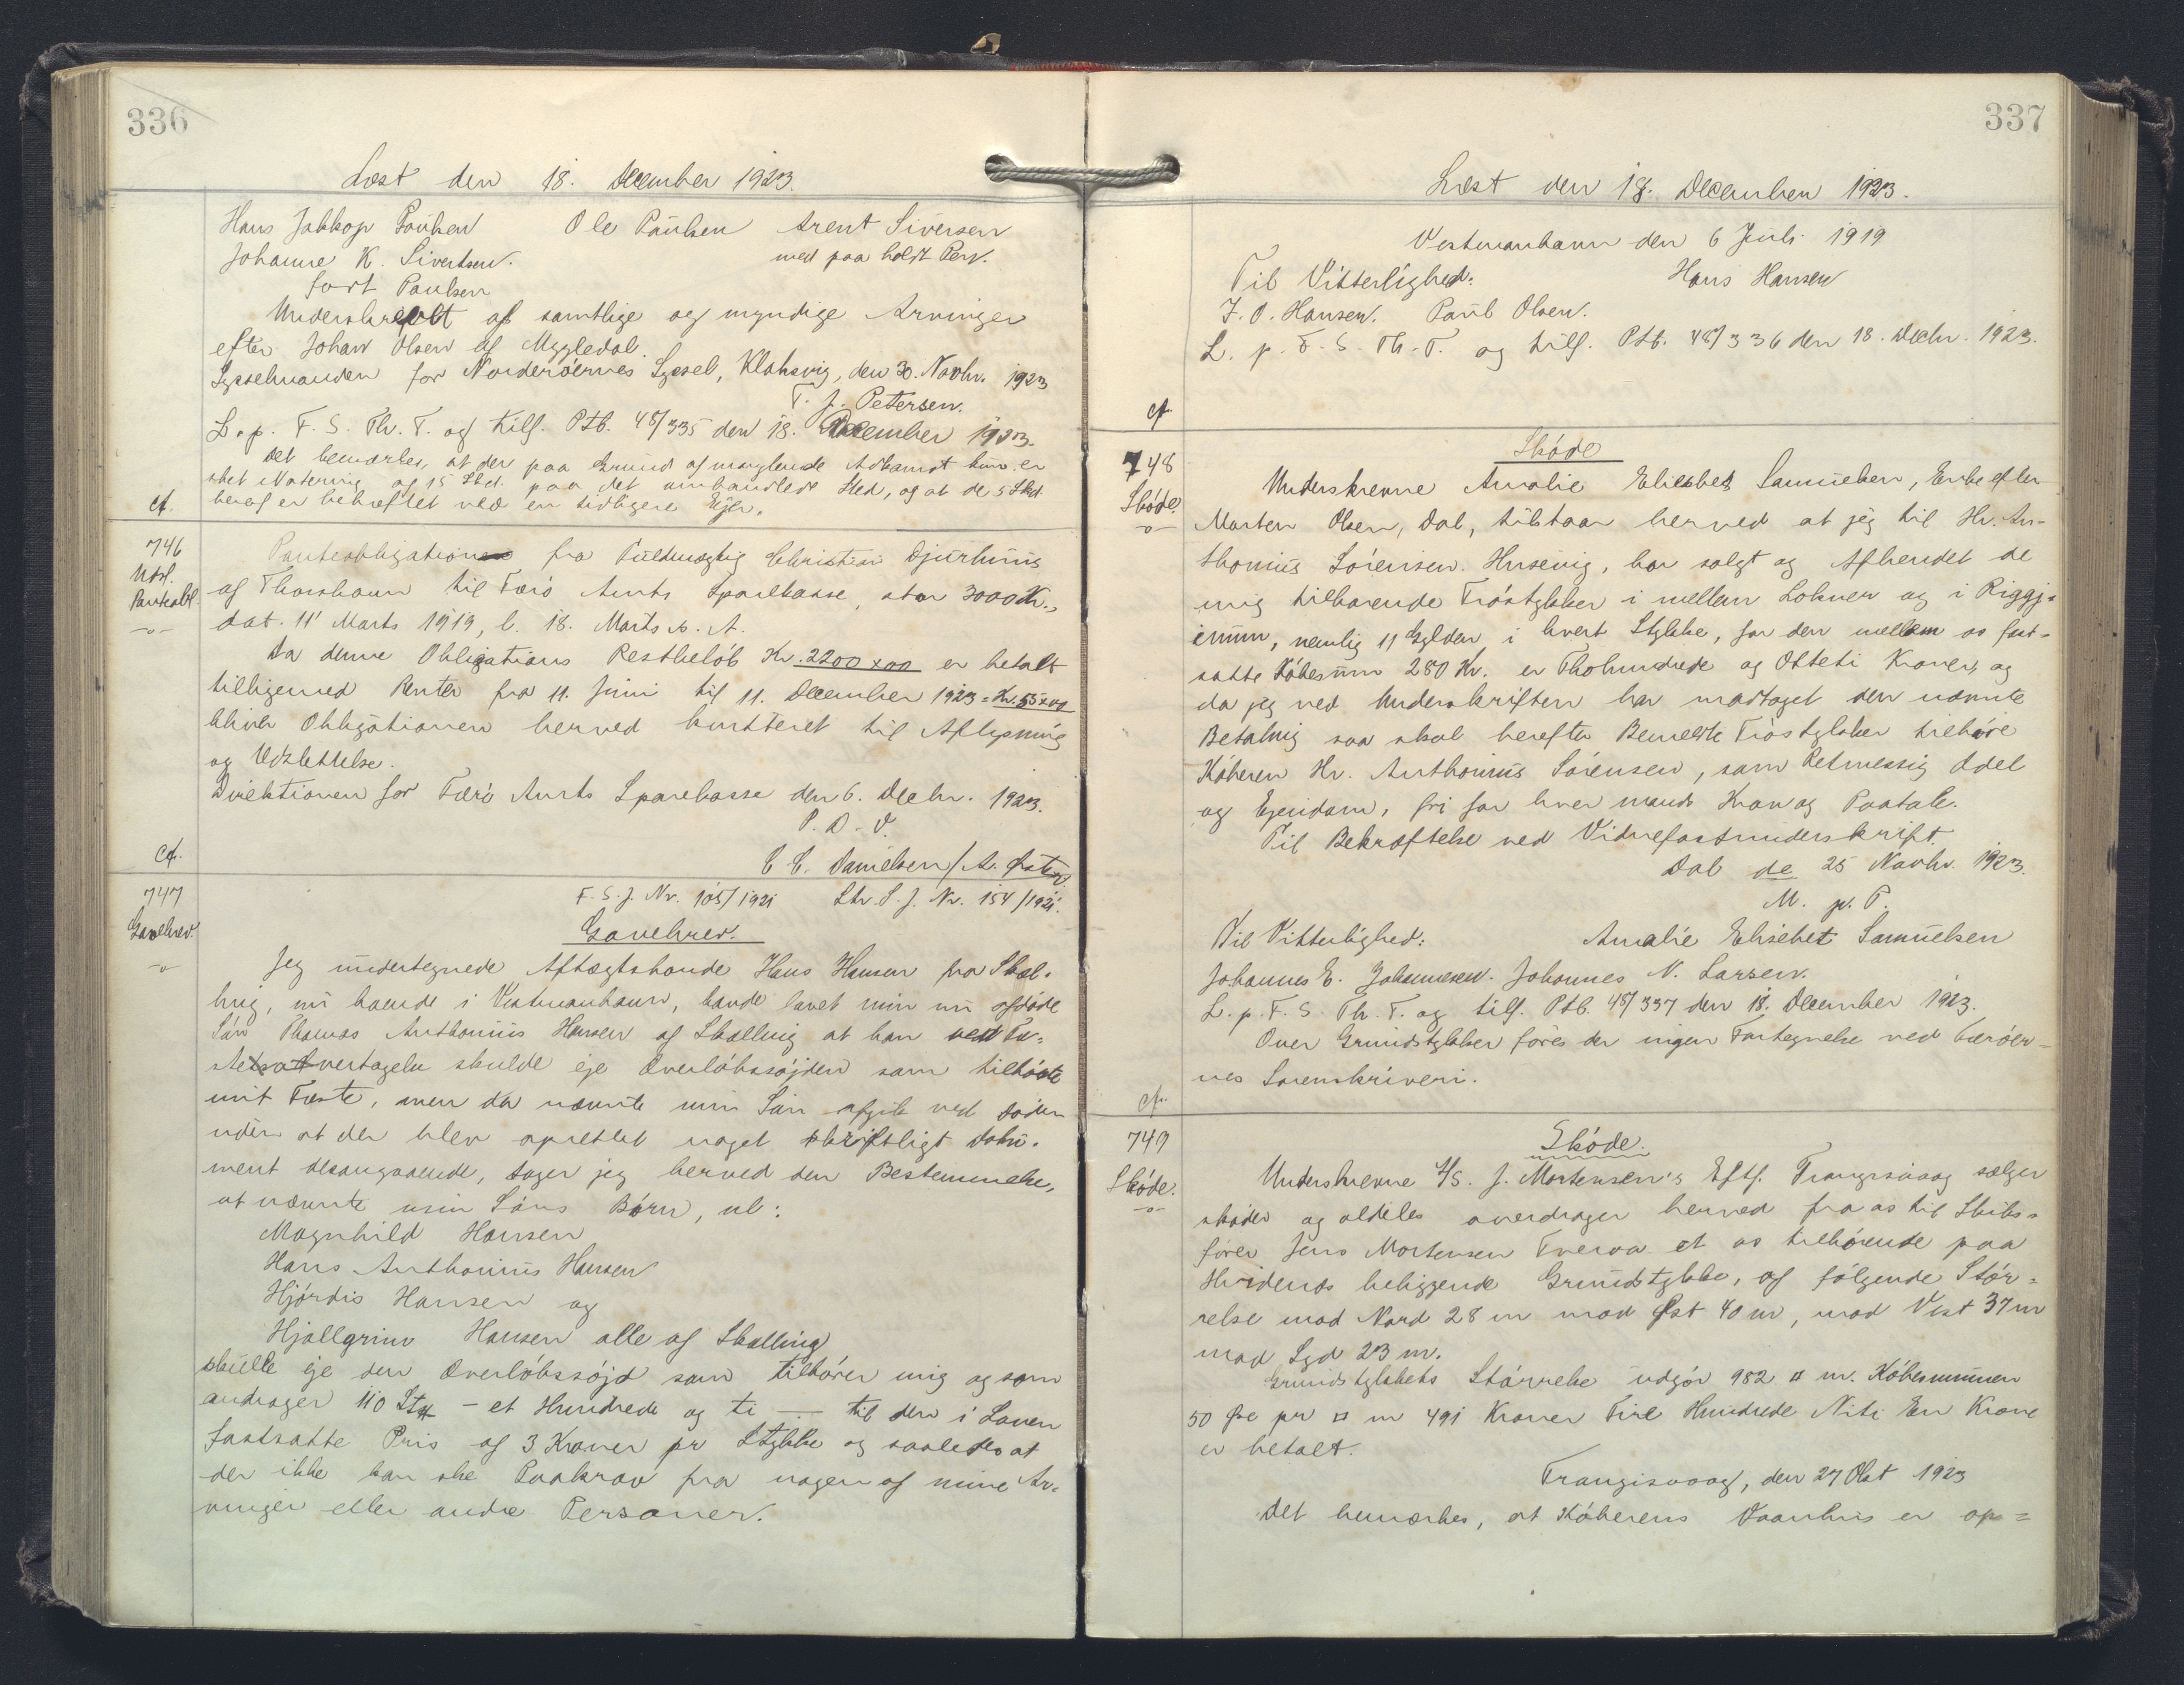 336
Læst den 18. December 1923.
Hans Jakkop Poulsen Ole Paulsen Arent Siversen
Johanne K. Sivertsen. med paa holdt Pen.
fort Paulsen
Underskrevet af samtlige og myndige Arvinger
efter Johan Olsen af Myggledal.
Sysselmanden for Norderöernes Syssel, Klaksvig, den 30. Novbr. 1923
T. J. Petersen.
L. p. F. S. Th. T. og tilf. Ptb. 48/335 den 18. December 1923.
Det bemærkes, at der paa Grund af manglende Adkomst kun er
sket Notering af 15 Skd. paa det omhandlede Sted, og at de 5 Skd
heraf er behæftet ved en tidligere Ejer.
cf.
746
Udsl.
Panteobl.
Panteobligationen fra Fuldmægtig Christian Djurhuus
af Thorshavn til Færö Amts Sparekasse, stor 3000 Kr.,
dat. 11' Marts 1919, l. 18. Marts s. A.
Da denne Obligations Restbelöb Kr. 2200 x 00 er betalt
tilligemed Renter fra 11. Juni til 11. December 1923 = Kr. 55 x 00
bliver Obligationen herved kvitteret til Aflysning
og Udslettelse.
Direktionen for Færö Amts Sparekasse den 6. Decbr. 1923.
P. D. V.
C C. Danielsen / A.
cf.
747
Gavebrev.
F. S. J. Nr. 105/1921 Str. S. J. Nr. 154/1921.
Gavebrev.
Jeg undertegnede Aftægtsbonde Hans Hansen fra Skæl-
ling, nu boende i Vestmanhavn, havde lovet min nu afdöde
Sön Thomas Anthonius Hansen af Skælling at han ved Fæ-
steovertagelse skulde eje Overlöbssöjden som tilhörte
mit Fæste, men da nævnte min Sön afgik ved Döden
uden at der blev oprettet noget skriftligt Doku-
ment desangaaende, tager jeg herved den Bestemmelse,
at nævnte min Söns Börn, nl:
Magnhild Hansen
Hans Anthonius Hansen
Hjördis Hansen og
Hjallgrim Hansen alle af Skælling
skulle eje den Overlöbssöjd som tilhörer mig og som
andrager 110 Stk – et Hundrede og ti – til den i Loven
fastsatte Pris af 3 Kroner pr Stykke og saaledes at
der ikke kan ske Paakrav fra nogen af mine Ar-
vinger eller andre Personer.
337
Læst den 18. December 1923.
Vestmanhavn den 6 Juli 1919
Til Vitterlighed: Hans Hansen
J. O. Hansen. Poul Olsen.
L. p. F. S. Th. T. og tilf. Ptb. 48/336 den 18. Decbr. 1923.
cf.
748
Sköde.
Sköde
Underskrevne Amalie Eliesbet Samuelsen, Enke efter
Morten Olsen, Dal, tilstaar herved at jeg til Hr. An-
thonius Sörensen. Husevig, har solgt og Afhendet de
mig tilhörende Tröstykker i mellem Lokner og i Riggj-
inum, nemlig 11 Gylden i hvert Stykke, for den mellem os fast-
satte Köbesum 280 Kr. er Thohundrede og Otteti Kroner, og
da jeg ved Underskriften har modtaget den nævnte
Betalnig saa skal herefter Bemeldte Tröstykker tilhöre
Köberen Hr. Anthonius Sörensen, som Retmessig Odel
og Ejendom, fri for hver mands Krav og Paatale.
Til Bekræftelse ved Vidnefastunderskrift.
Dal de 25 Novbr. 1923.
M. p. P.
Til Vitterlighed: Amalie Elisebet Samuelsen
Johannes E. Johannesen. Johannes N. Larsen.
L. p. F. S. Th. T. og tilf. Ptb. 48/337 den 18. December 1923.
Over Grundstykker föres der ingen Fortegnelse ved Færöer-
nes Sorenskriveri.
cf.
749
Sköde.
Sköde.
Underskrevne A/S. J. Mortensen's Eftf. Trangisvaag sælger
sköder og aldeles overdrager herved fra os til Skibs-
förer Jens Mortensen Tveraa et os tilhörende paa
Hvidenæs beliggende Grundstykke, af fölgende Stör-
relse mod Nord 28 m mod Øst 40 m, mod Vest 37 m
mod Syd 23 m.
Grundstykkets Störrelse udgör 982 □ m. Köbesummen
50 Øre pr □ m 491 Kroner Fire Hundrede Niti En Krone
er betalt.
Trangisvaag, den 27 Okt 1923
Det bemærkes, at Köberens Vaanhus er op-